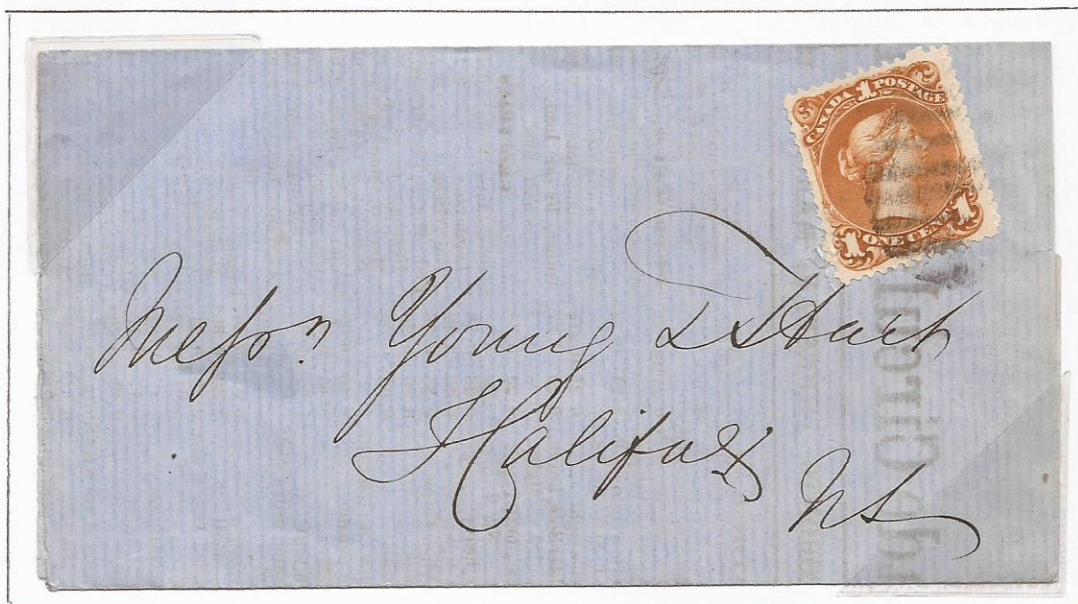 CANADA 1 POSTAGE
1 ONE CENT 1
Messrs. Young & Hart
Halifax
NS